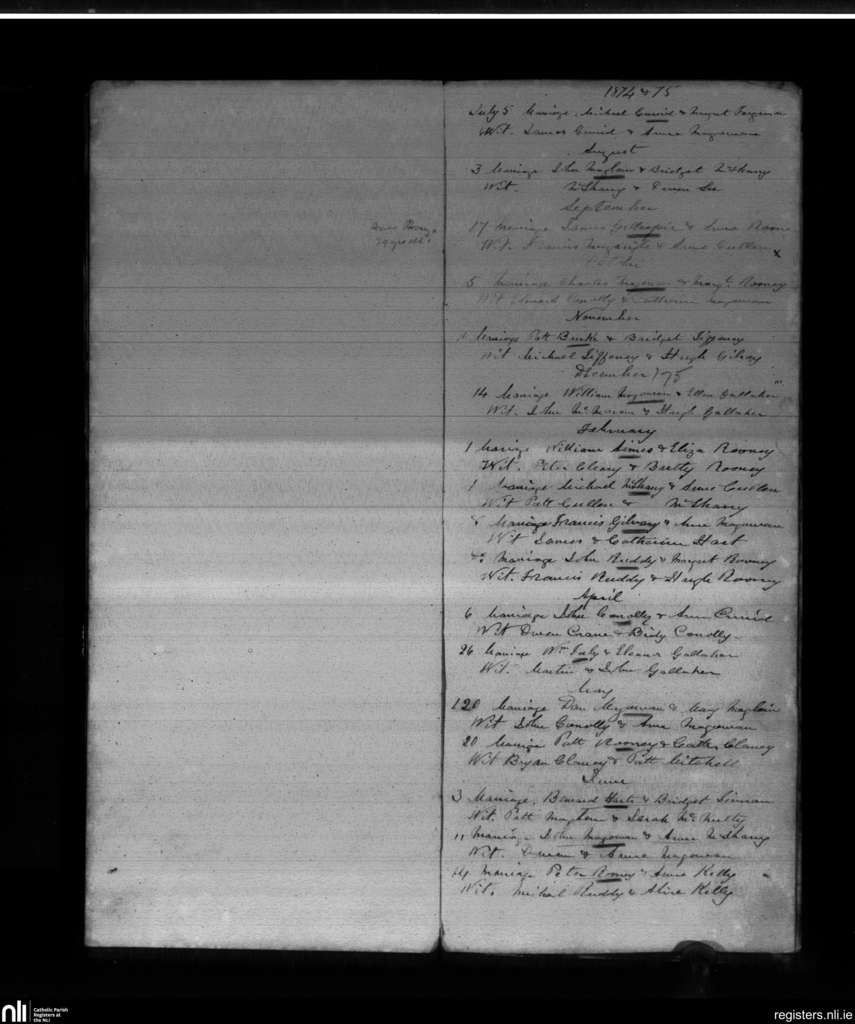 1874 & 75
July 5 Marriage. Michael & Margret Ferguson
Wit. James & Anne Magowan
August
3 Marriage John Maglain & Bridget McSharry
Wit. McSharry &
September
Anne Rooney
17 Marriage James Gillespie & Anne Rooney
Wit. Francis & Anne Cullen x
5 Marriage Charles Magowan & Margt. Rooney
Wit Edward Conolly & Catherine Magowan
November
Marriage Patt Burke & Bridget Tiffaney
Wit Michael Tiffaney & Hugh Gilroy
December /75
14 Marriage William Magowan & Ellen Gallaher
Wit. John & Hugh Gallaher
February
1 Marriage William Simes & Eliza Rooney
Wit. Peter Cleary & Betty Rooney
1 Marriage Michael McSharry & Anne Cullen
Wit Patt Cullen & McSharry
8 Marriage Francis Gilvary & Anne Magowan
Wit James & Catherine Hart
Do Marriage John Ruddy & Margret Rooney
Wit. Francis Ruddy & Hugh Rooney
April
6 Marriage John Conolly & Ann
Wit Owen Crane & Bidy Conolly
26 Marriage Wm Feely & Eleanor Gallaher
Wit. Martin & John Gallaher
May
20 Marriage Dan Magowan & Mary Maglain
Wit John Conolly & Anne Magowan
20 Marriage Patt Rooney & Cath Clancy
Wit Bryan Clancy & Patt Mitchell
June
3 Marriage. Bernard Harte & Bridget
Wit. Patt & Sarah McNulty
11 Marriage John Magowan & Anne McSharry
Wit. Owen & Anne Magowan
14 Marriage Peter Rooney & Anne Kelly
Wit. Michael Ruddy & Alice Kelly
nli Catholic Parish
Registers at
the NLI
registers.nli.ie